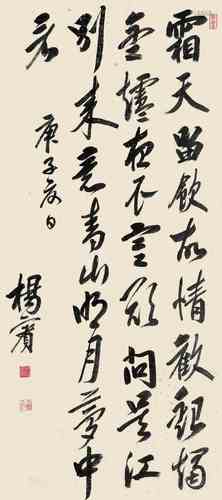 霜天留飲故情歡銀燭
金爐夜不寒欲問吳江
別來意青山明月夢中
看
庚子夏日
楊賓